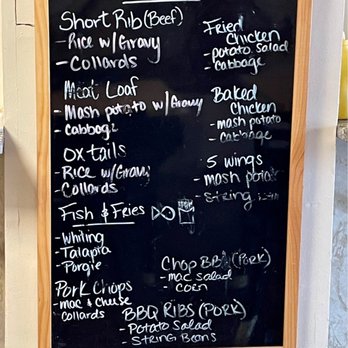 Short Rib (Beef)
- Rice w/ Gravy
- Collards
Meat Loaf
- Mash potato w/ Gravy
- Cabbage
Oxtails
- Rice w/ Gravy
- Collards
Fish & Fries
- Whiting
- Talapia
- Porgie
Pork Chops
- Mac & Cheese
Collards
Fried
Chicken
- Potato Salad
- Cabbage
Baked
Chicken
- Mash potato
- Cabbage
5 wings
- Mash potato
- String
Chop BBQ (Pork)
- Mac Salad
- Corn
BBQ Ribs (Pork)
- Potato Salad
- String Beans